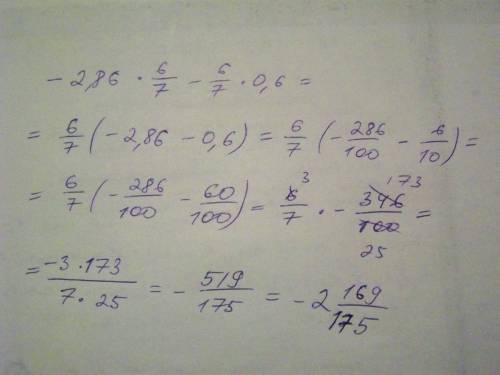 - 2,86 · 6/7 - 6/7 · 0,6 =
= 6/7 (- 2,86 - 0,6) = 6/7 (- 286/100 - 6/10) =
= 6/7 (- 286/100 - 60/100) = 6/7 3 · - 346/100 173 25 =
= -3 · 173 / 7 · 25 = - 519/175 = - 2 169/175